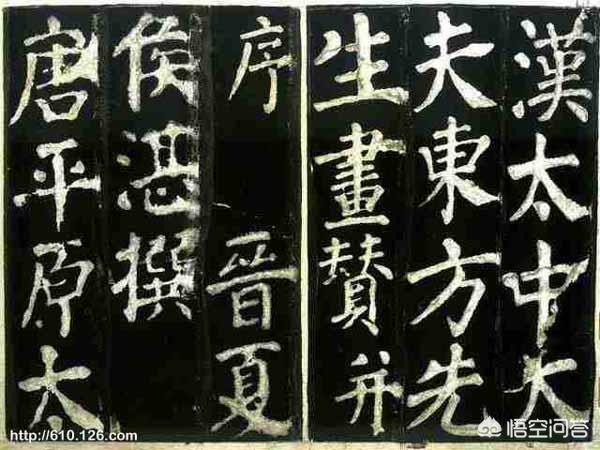 漢太中大
夫東方先
生畫贊并
序 晉夏
侯湛撰
唐平原太
http://610.126.com
悟空问答